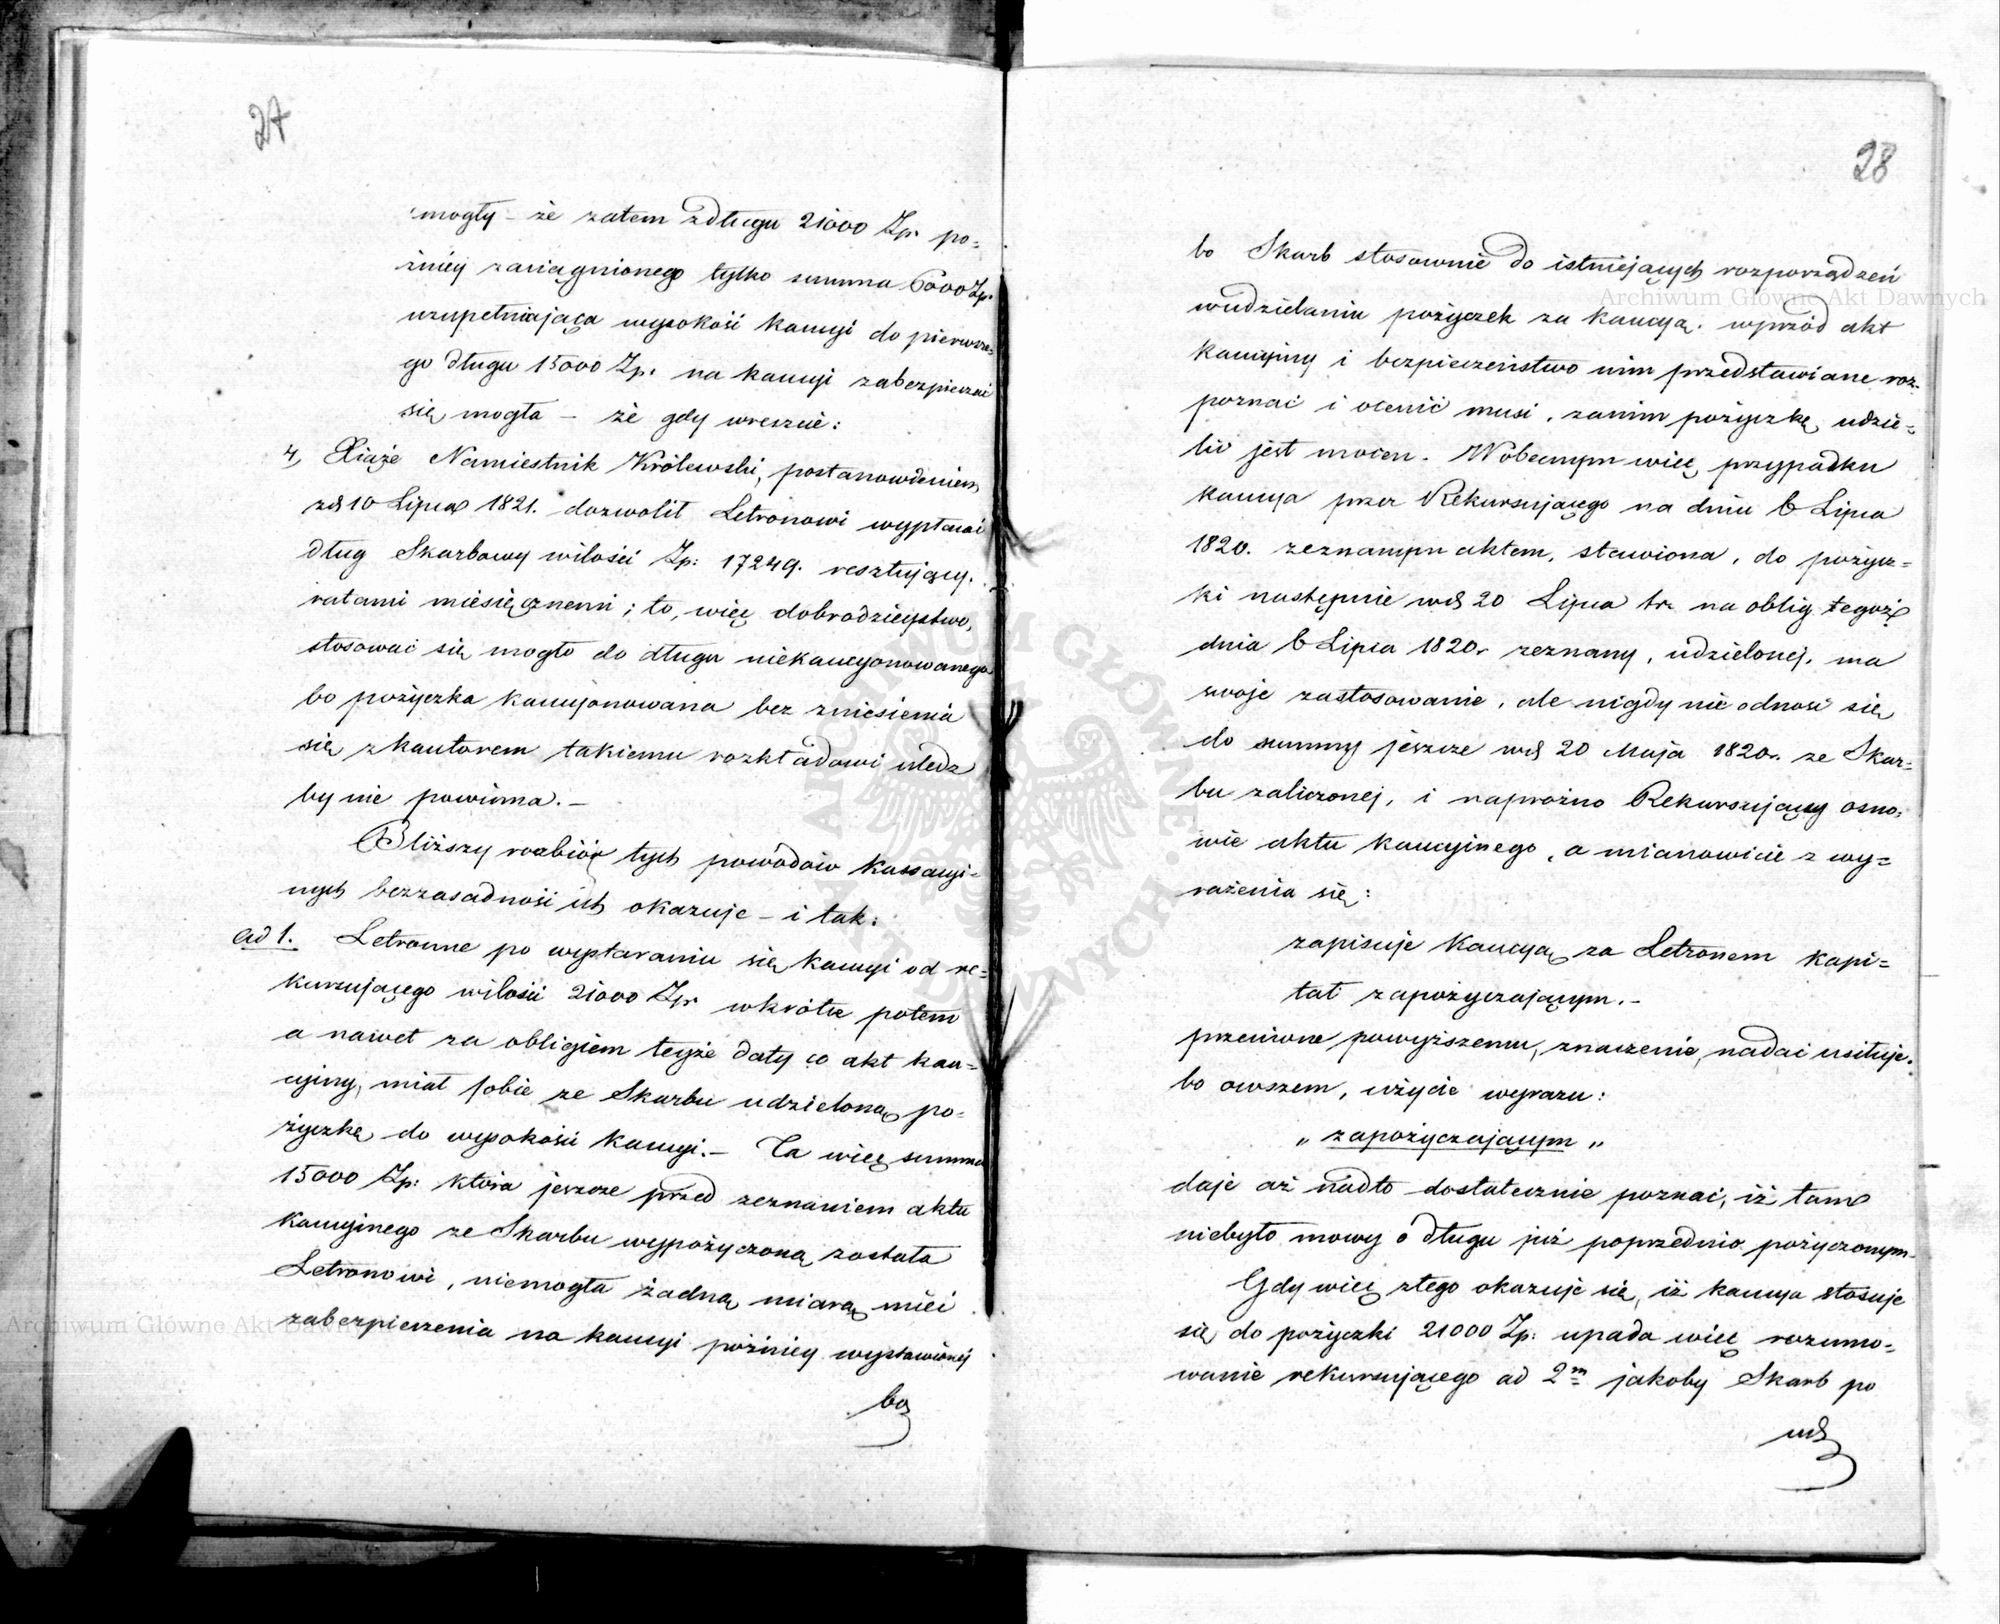 27
mogły – że zatem z długu 21000 Zp. po=
źniéy zaciągnionego tylko summa 6000 Zp.
uzupełniająca wysokość kaucyi do pierwsze=
go długu 15000 Zp. na kaucyi zabezpieczać
się mogła – że gdy wreszcie:
4, Xiąże Namiestnik Królewski, postanowieniem
z d 10 Lipca 1821. dozwolił Letronowi wypłacać
dług Skarbowy w ilości Zp: 17249. resztujący.
ratami miesięcznemi; to, więc dobrodzieystwo,
stosować się mogło do długu niekaucyonowanego
bo pożyczka kaucyonowana bez zniesienia
się z kautorem takiemu rozkładowi uledz
by nie powinna. –
Bliższy rozbiór tych powodów kassacyi=
nych bezzasadność ich okazuje – i tak:
ad 1. Letronne po wystaraniu się kaucyi od re=
kursującego w ilości 21000 Zp. wkrótce potem
a nawet za obligiem teyże daty co akt kau=
cyiny, miał sobie ze Skarbu udzieloną po=
życzkę do wysokości kaucyi. – Ta więc summa
15000 Zp: która jeszcze przed zeznaniem aktu
kaucyinego ze Skarbu wypożyczoną została
Letronowi, niemogła żadną miarą mieć
zabezpieczenia na kaucyi późniéy wystawionéj
bo
28
bo Skarb stosownie do istniejących rozporządzeń
w udzielaniu pożyczek za kaucyą. wprzód akt
kaucyiny i bezpieczeństwo nim przedstawiane roz=
poznać i ocenić musi, zanim pożyczkę udzie=
lić jest mocen. W obecnym więc przypadku
kaucya przez Rekursującego na dniu 6 Lipca
1820. zeznanym aktem, stawiona, do pożycz=
ki następnie w d 20 Lipca t.r. na oblig tegoż
dnia 6 Lipca 1820. zeznany, udzielonej, ma
swoje zastosowanie, ale nigdy nie odnosi się
do summy jeszcze w d 20 Maja 1820. ze Skar=
bu zaliczonej, i napróżno Rekursujący osno=
wie aktu kaucyinego, a mianowicie z wy=
rażenia się:
zapisuje kaucyą za Letronem kapi=
tał zapożyczającym. –
przeciwne powyższemu, znaczenie, nadać usiłuje.
bo owszem, użycie wyrazu:
„ zapożyczającym „
daje aż nadto dostatecznie poznać, iż tam
niebyło mowy o długu już poprzednio pożyczonym –
Gdy więc z tego okazuje się, iż kaucya stosuje
się do pożyczki 21000 Zp: upada więc rozumo=
wanie rekursującego ad 2m jakoby Skarb po
ud
Archiwum Główne Akt Dawnych
Archiwum Główne Akt Dawnych
ARCHIWUM GŁÓWNE AKT DAWNYCH